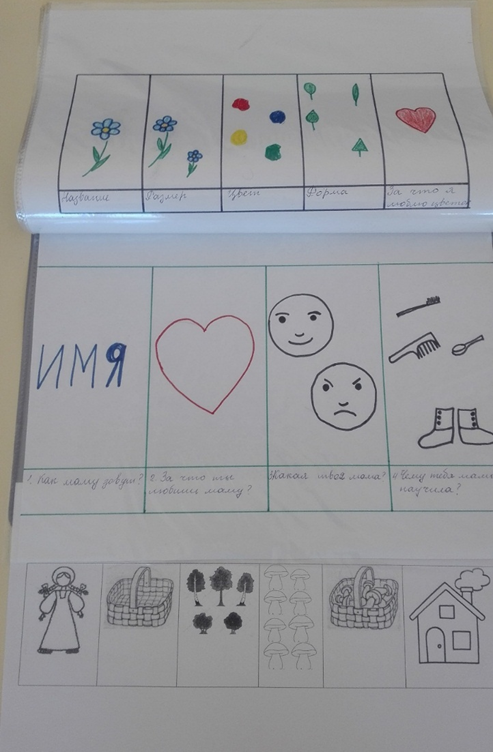 Название Размер Цвет Форма За что я
люблю цветы
ИМЯ
1. Как маму зовут? 2. За что ты Какая твоя мама? 4. Чему тебя мама
любишь маму? научила?